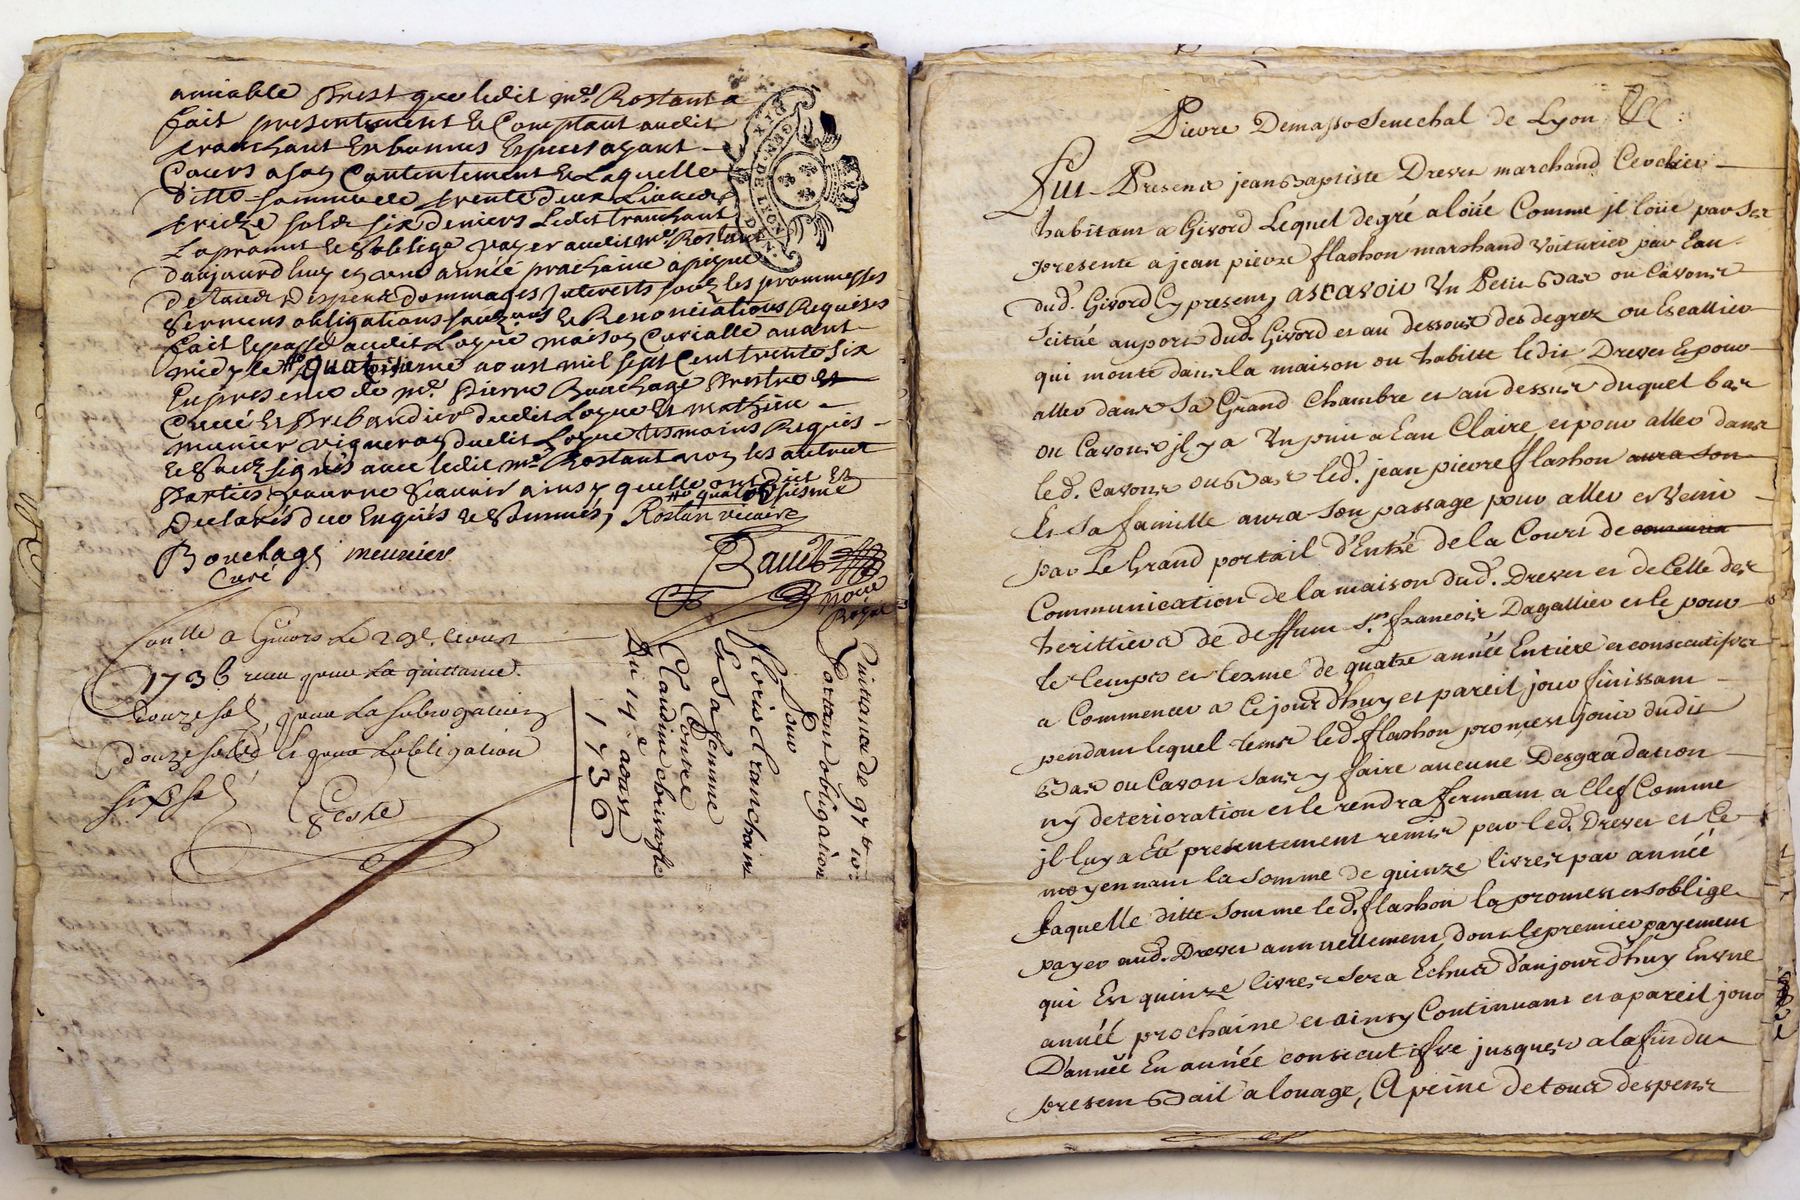 amiable prest que ledit mre Rostant a
fait presentement & Comptant audit
tranchant en bonnes especes ayant
Cours a son Contentement & Laquelle
ditte somme de trente deux Livres
treize sols six deniers Ledit tranchant
La promet & soblige payer audit mre Rostant
daujourdhuy en une année prochaine a peyne
de tous despens dommages Interests sous les prommesses
sermens obligations & Renonciations Requises
fait & passé audit Loyre maison Curialle avant
midy le quatorzieme aoust mil sept Cent trente six
En presence de mre Pierre Bouchage Prestre
Curé & Prebandier dudit Loyre & mathieu
munier vigneron dudit Loyre tesmoins Requis
& soubsignés avec ledit mre Rostant non les autres
Parties pour ne sçavoir ainsy quelles ont dit &
Declarés de ce Enquis & sommés, Rostan vicaire
quatorzieme
Bouchage meunier
Curé
Baud
Notre
Royal
Conlle a Givors Le 29e aoust
1736 reçu pour La quittance
douze sols, pour La subrogation
douze sols & pour Lobligation
six sols
Quittance de 97 lt 10 s
Portant obligation
Pour
floris tranchant
& Sa femme
Contre
Claudine christofle
Du 14e aoust
1736
DIX DEN. GEN. DE LYON
Pierre Demasso Senechal de Lyon
Fut Present jean Baptiste Drevet marchand Cerclier
habitant a Givord Lequel de gré a loüé Comme jl loüe par Ses
presente a jean pierre flachon marchand voiturier par Eau
dud. Givord Cy present, ascavoir Un Petit Bas ou Cavour
Scitué au port dud. Givord et au dessous des degrez ou Escallier
qui monte dans la maison ou habitte ledit Drevet & pour
aller dans Sa Grand Chambre et au dessus duquel bas
ou Cavour jl y a Un puit a Eau Claire, et pour aller dans
led. Cavour ou Bas led. jean pierre flachon aura son
Et Sa famille aura Son passage pour aller et Venir
par Le Grand portail d'Entré de la Court de commun
Communication de la maison dud. Drevet et de Celle des
herittiers de deffunt Sr. francois Dagallier et le pour
le temps et terme de quatre année Entiere et consecutifve
a Commencer a Ce jourd'huy et pareil jour finissant
pendant lequel tems led. flachon promest jouir dudit
Bas ou Cavon Sans y faire aucune Desgradation
ny deterioration et le rendra fermant a Clef Comme
jl luy a Eté presentement remis par led. Drevet et Ce
moyennant la Somme de quinze livres par année
laquelle ditte Somme led. flachon la promest et soblige
payer aud. Drevet annuellement, dont le premier payement
qui Est quinze livres Sera Echus d'aujourd'huy En une
année prochaine et ainsy Continuant et a pareil jour
D'année En année consecutifve jusques a la fin du
present Bail a louage, A peine de tous despens